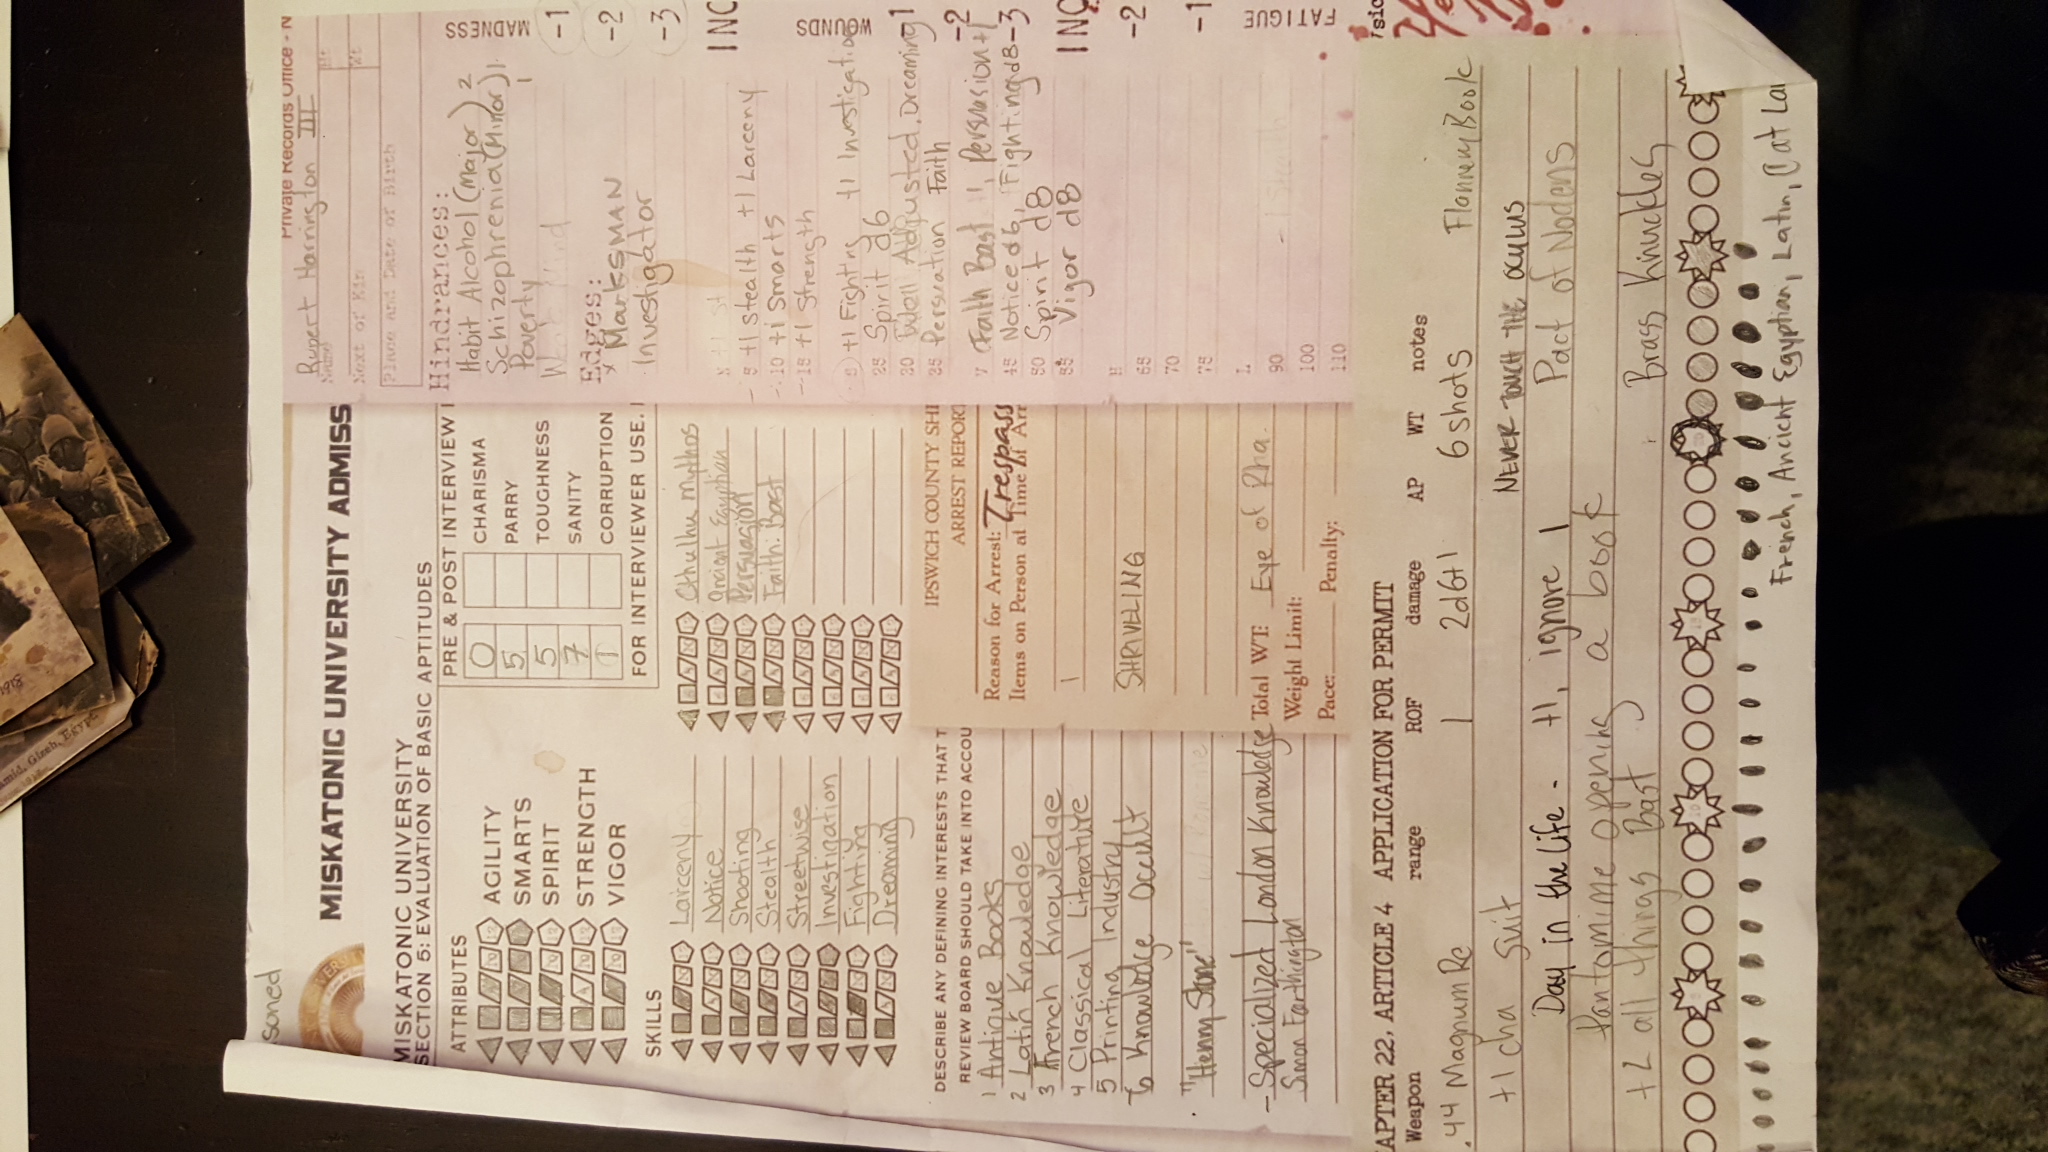 soned
MISKATONIC UNIVERSITY ADMISS
MISKATONIC UNIVERSITY
SECTION 5: EVALUATION OF BASIC APTITUDES
ATTRIBUTES
AGILITY
SMARTS
SPIRIT
STRENGTH
VIGOR
PRE & POST INTERVIEW
0 CHARISMA
5 PARRY
5 TOUGHNESS
7 SANITY
1 CORRUPTION
FOR INTERVIEWER USE.
SKILLS
Larceny
Notice
Shooting
Stealth
Streetwise
Investigation
Fighting
Dreaming
Cthulhu Mythos
Ancient Egyptian
Persuasion
Faith: Bast
Private Records Office - N
Rupert Harrington III
Name
Next of Kin
Place and Date of Birth
Hindrances:
Habit Alcohol (Major) 2
Schizophrenia (Minor) 1
Poverty 1
Edges:
Marksman
Investigator
5 +1 Stealth +1 Larceny
10 +1 Smarts
15 +1 Strength
+1 Fighting +1 Investigation
25 Spirit d6
30 Well Adjusted, Dreaming 1
35 Persuation Faith
Faith Bast 11, Persuasion +1
45 Notice d6, Fighting d8
50 Spirit d8
55 Vigor d8
65
70
75
90
100
110
MADNESS
-1
-2
-3
INC
WOUNDS
-1
-2
-3
INC
-2
-1
FATIGUE
DESCRIBE ANY DEFINING INTERESTS THAT T
REVIEW BOARD SHOULD TAKE INTO ACCOU
1 Antique Books
2 Latin Knowledge
3 French Knowledge
4 Classical Literature
5 Printing Industry
6 Knowledge Occult
"Henny Stone"
- Specialized London Knowledge
Simon Farthington
IPSWICH COUNTY SHE
ARREST REPORT
Reason for Arrest: Trespass
Items on Person at Time of Arr
SHRIVELING
Total WT: Eye of Rha
Weight Limit:
Pace: Penalty:
APTER 22, ARTICLE 4 APPLICATION FOR PERMIT
Weapon range ROF damage AP WT notes
.44 Magnum Re 1 2d6+1 6 shots Flannery Book
+1 cha suit NEVER TOUCH THE OCULUS
Day in the life - +1, ignore 1 Pact of Nodens
Pantomime opening a book
+2 all things Bast Brass Knuckles
French, Ancient Egyptian, Latin, Cat La
1918
amid, Gizeh, Egypt